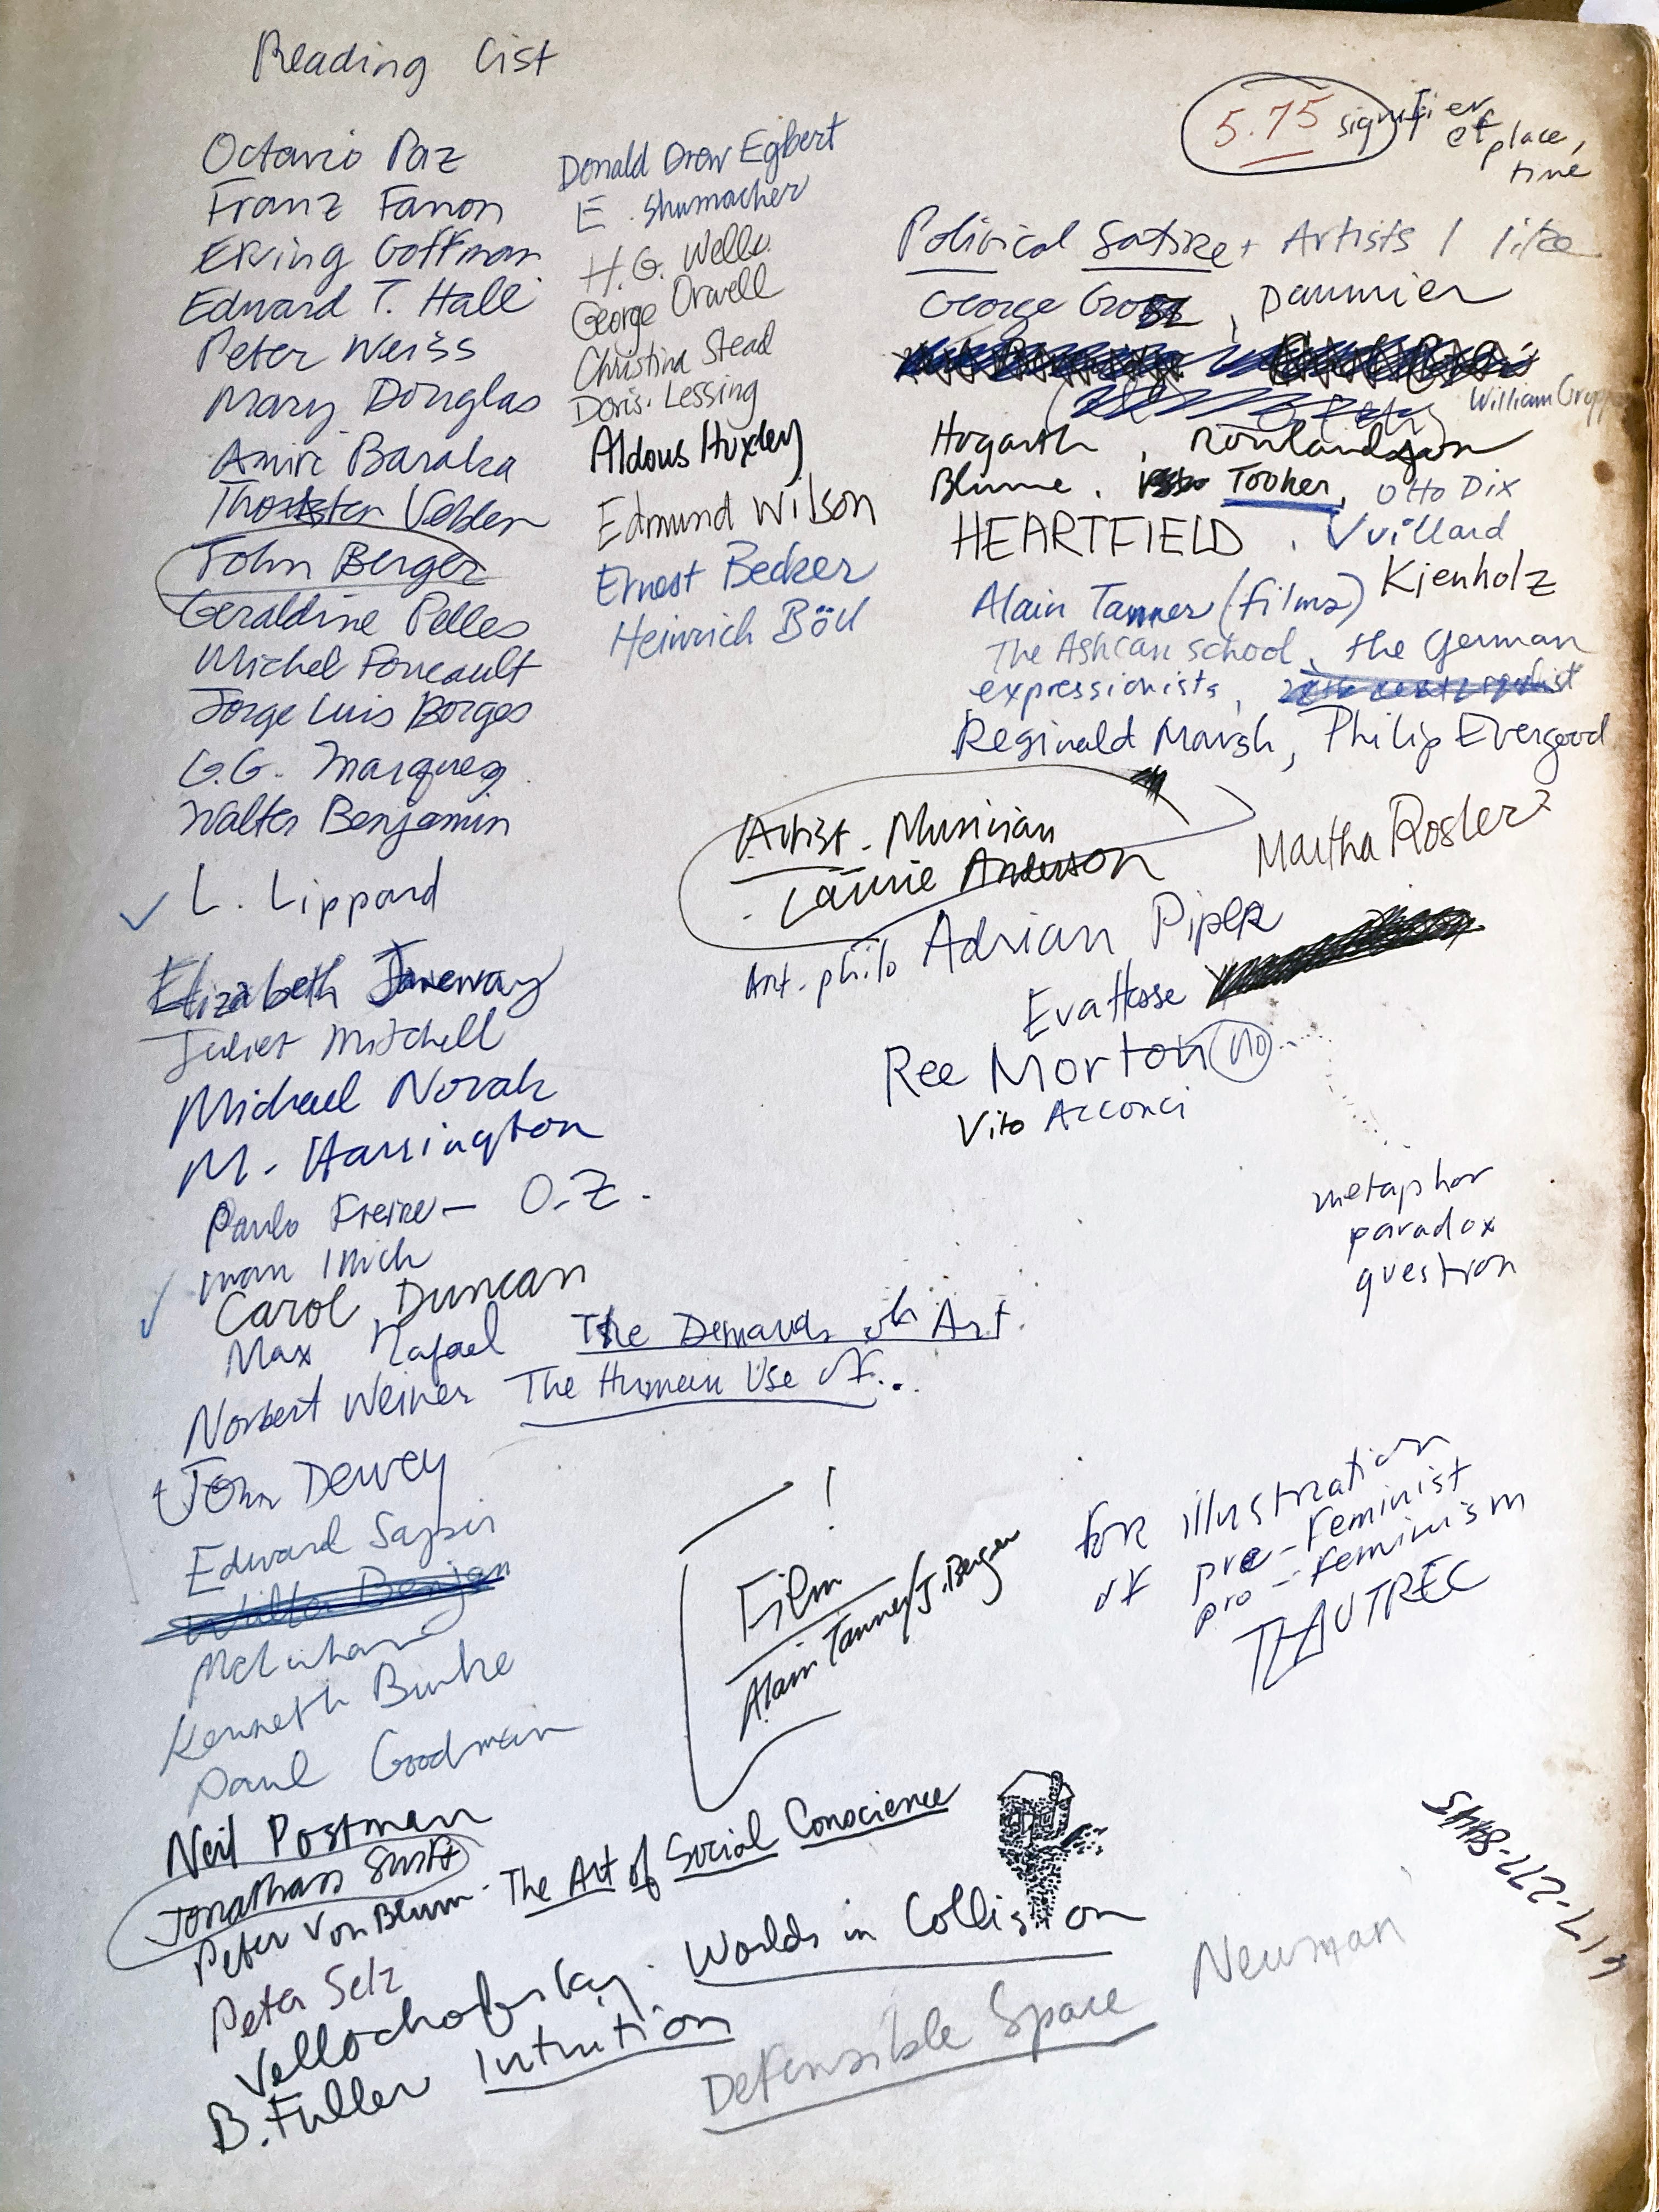 Reading List
Octavio Paz
Franz Fanon
Erving Goffman
Edward T. Hall
Peter Weiss
Mary Douglas
Amiri Baraka
Thorsten Veblen
John Berger
Geraldine Pelles
Michel Foucault
Jorge Luis Borges
G.G. Marquez
Walter Benjamin
L. Lippard
Elizabeth Janeway
Juliet Mitchell
Michael Novak
M. Harrington
Paulo Freire — O.Z.
Ivan Illich
Carol Duncan
Max Rafael The Demands of Art.
Norbert Weiner The Human Use of...
John Dewey
Edward Sapir
Walter Benjan
McLuhan
Kenneth Burke
Paul Goodman
Neil Postman
Jonathan Swift
Peter Von Blum. The Art of Social Conscience
Peter Selz
Vellochofsky. Worlds in Collision
B. Fuller Intuition
Defensible Space Newman
Donald Drew Egbert
E. Shumacher
H.G. Wells
George Orwell
Christina Stead
Doris Lessing
Aldous Huxley
Edmund Wilson
Ernest Becker
Heinrich Böll
5.75 signifier of place, time
Political Satire + Artists I like
George Grosz, Daumier
William Gropper
Hogarth, Rowlandson
Blume, Tooker, Otto Dix
HEARTFIELD, Vuillard
Kienholz
Alain Tanner (films)
The Ashcan school, the German
expressionists,
Reginald Marsh, Philip Evergood
Artist - Musician
Laurie Anderson
Martha Rosler
Art. philo Adrian Piper
Eva Hesse
Ree Morton no
Vito Acconci
metaphor
paradox
question
!
Film
Alain Tanner/J. Berger
for illustration
of pre-feminist
pro-feminism
TLAUTREC
617-277-8445